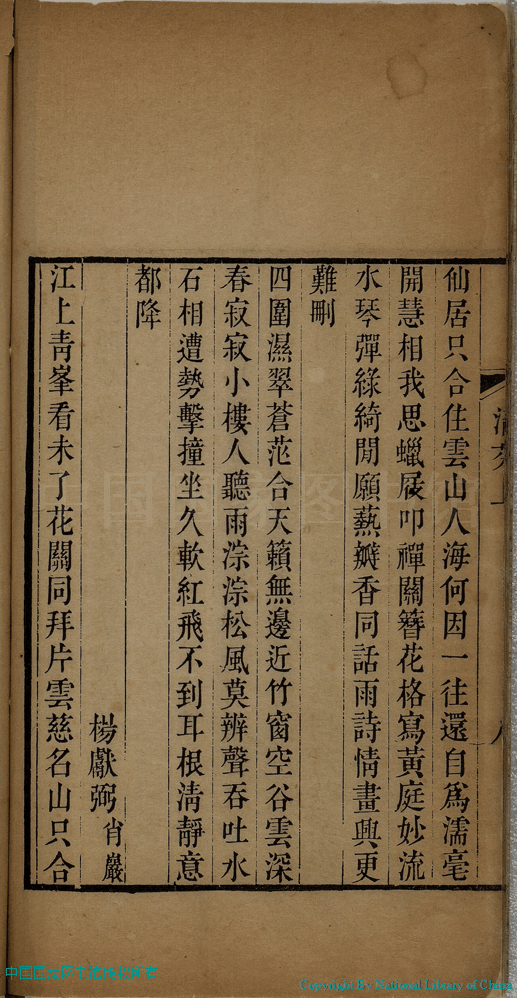 仙居只合住雲山人海何因一往還自爲濡毫
開慧相我思蠟屐叩禪關簪花格寫黃庭妙流
水琴彈綠綺閒願爇瓣香同話雨詩情畫興更
難刪
四圍濕翠蒼茫合天籟無邊近竹窗空谷雲深
春寂寂小樓人聽雨淙淙松風莫辨聲吞吐水
石相遭勢擊撞坐久軟紅飛不到耳根淸靜意
都降
楊獻弼肖巖
江上靑峯看未了花關同拜片雲慈名山只合
Copyright By National Library of China